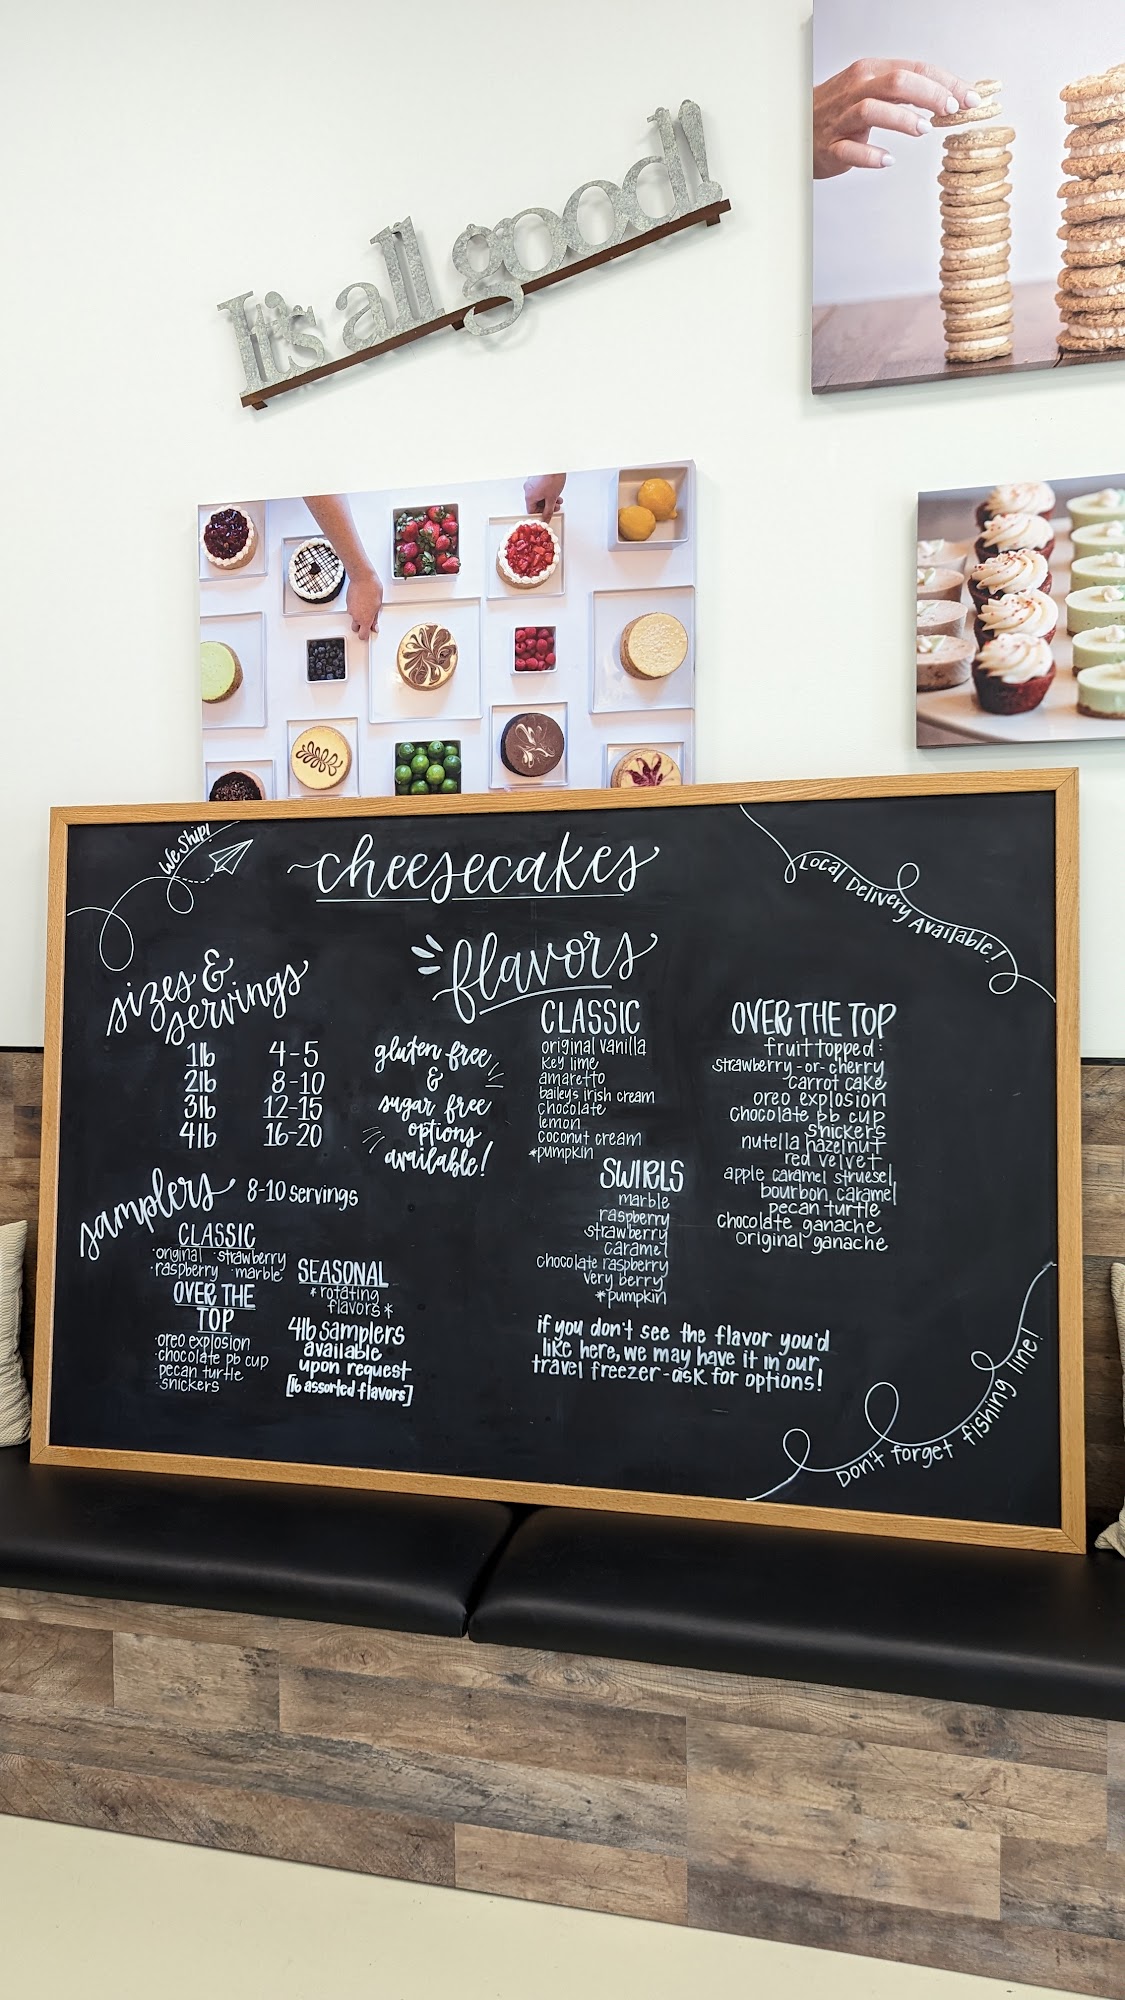 It's all good!
We Ship!
cheesecakes
Local Delivery Available!
sizes &
servings
1lb 4-5
2lb 8-10
3lb 12-15
4lb 16-20
flavors
gluten free
&
sugar free
options
available!
CLASSIC
original vanilla
key lime
amaretto
bailey's irish cream
chocolate
lemon
coconut cream
*pumpkin
SWIRLS
marble
raspberry
strawberry
caramel
chocolate raspberry
very berry
*pumpkin
OVER THE TOP
fruit topped:
strawberry -or- cherry
carrot cake
oreo explosion
chocolate pb cup
snickers
nutella hazelnut
red velvet
apple caramel struesel
bourbon caramel
pecan turtle
chocolate ganache
original ganache
samplers 8-10 servings
CLASSIC
·original ·strawberry
·raspberry ·marble
OVER THE
TOP
·oreo explosion
·chocolate pb cup
·pecan turtle
·snickers
SEASONAL
*rotating
flavors*
4lb samplers
available
upon request
[16 assorted flavors]
if you don't see the flavor you'd
like here, we may have it in our
travel freezer - ask for options!
Don't forget fishing line!